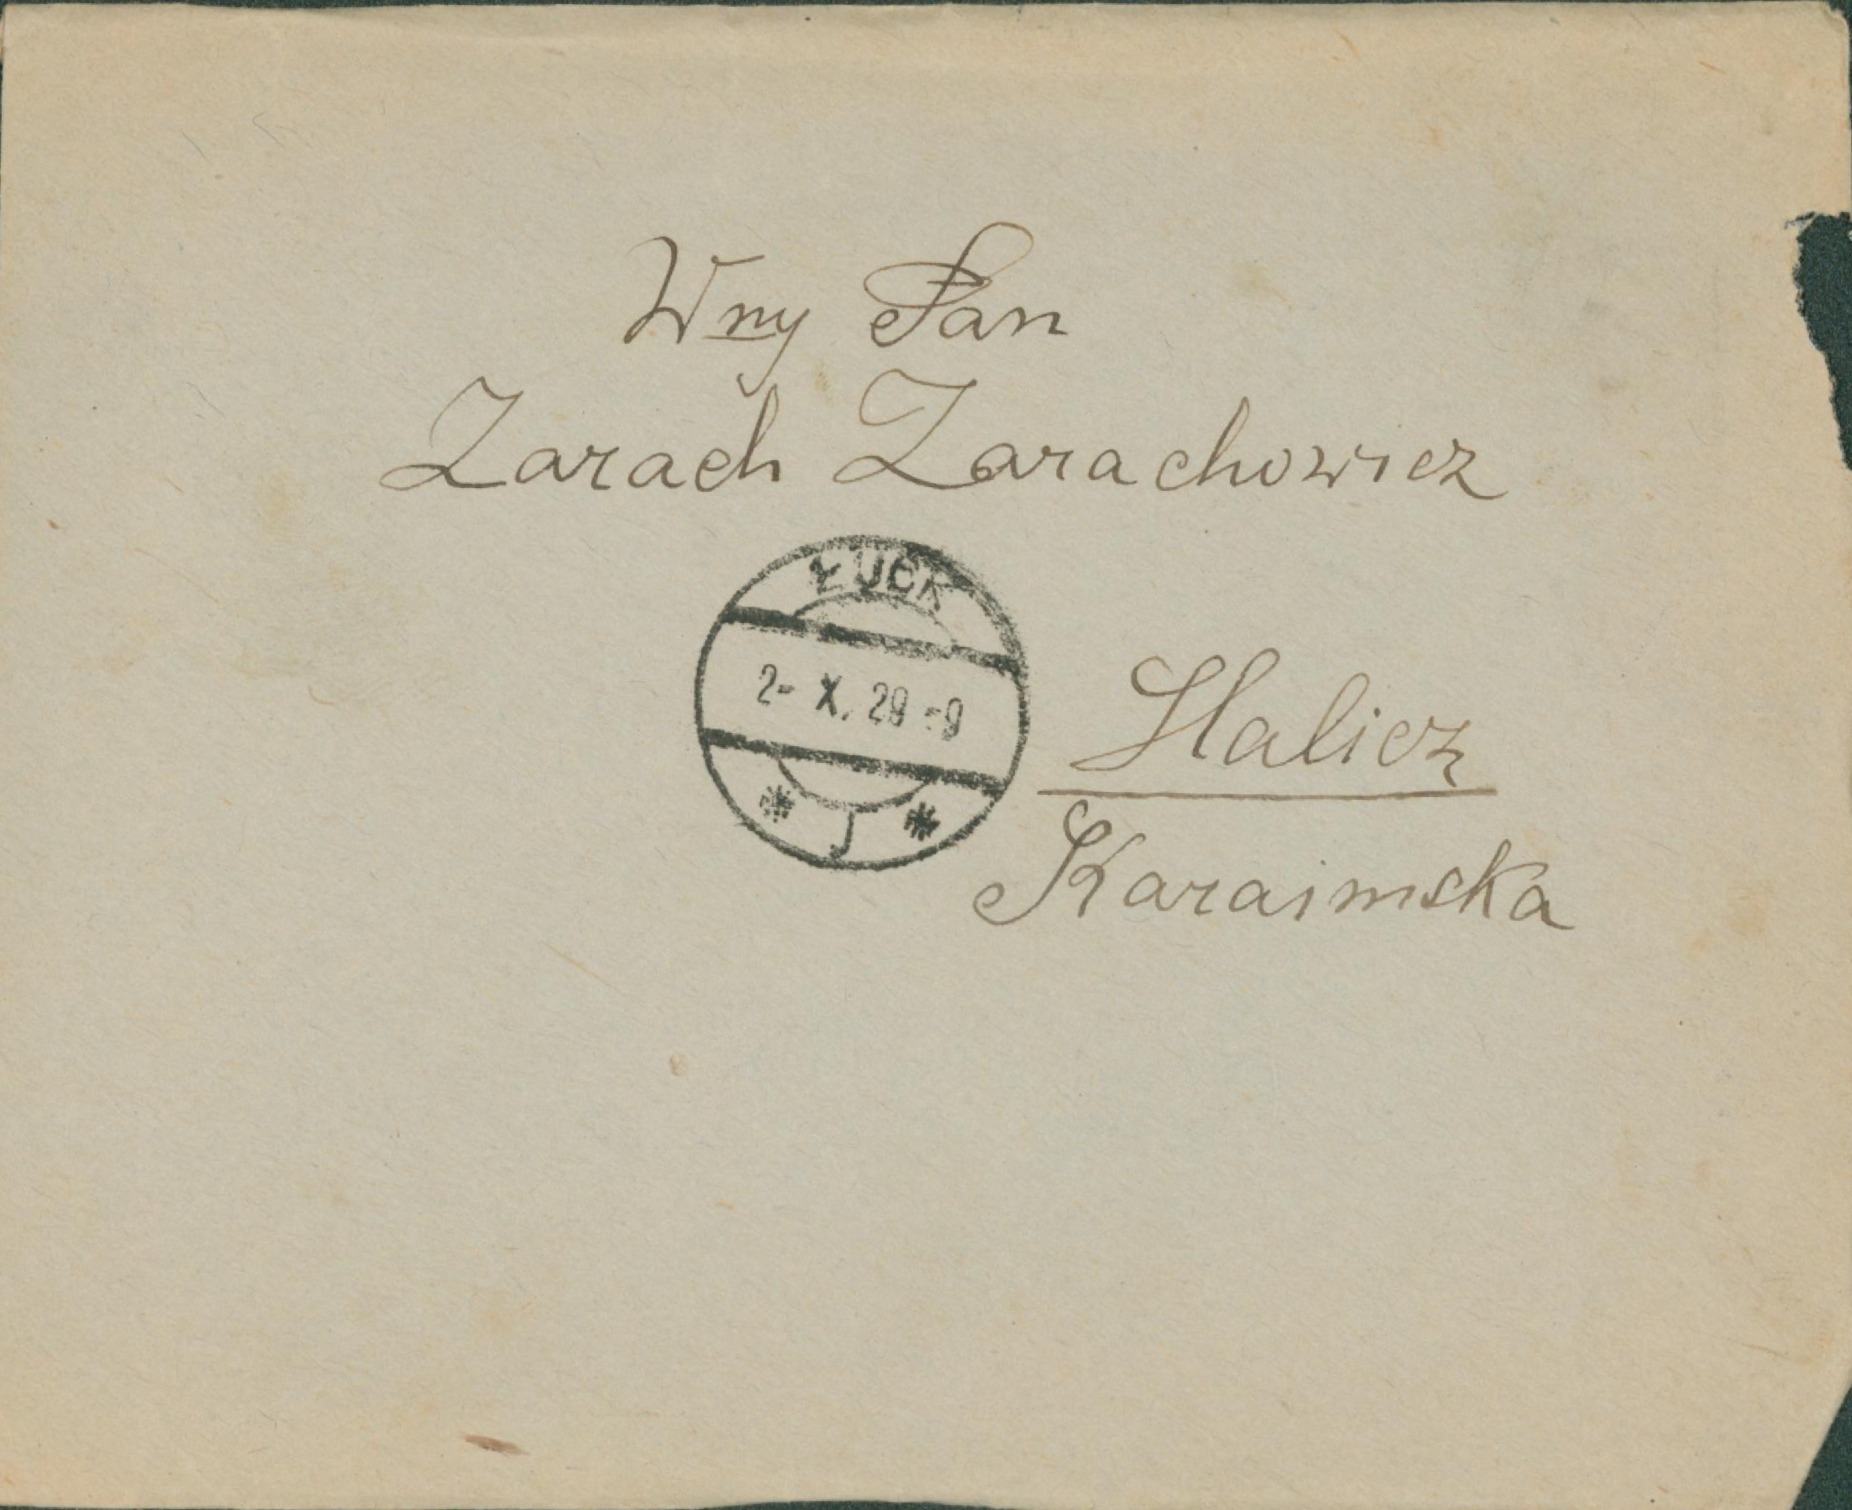 Wny Pan
Zarach Zarachowicz
ŁUCK
2- X. 29 -9
* J *
Halicz
Karaimska